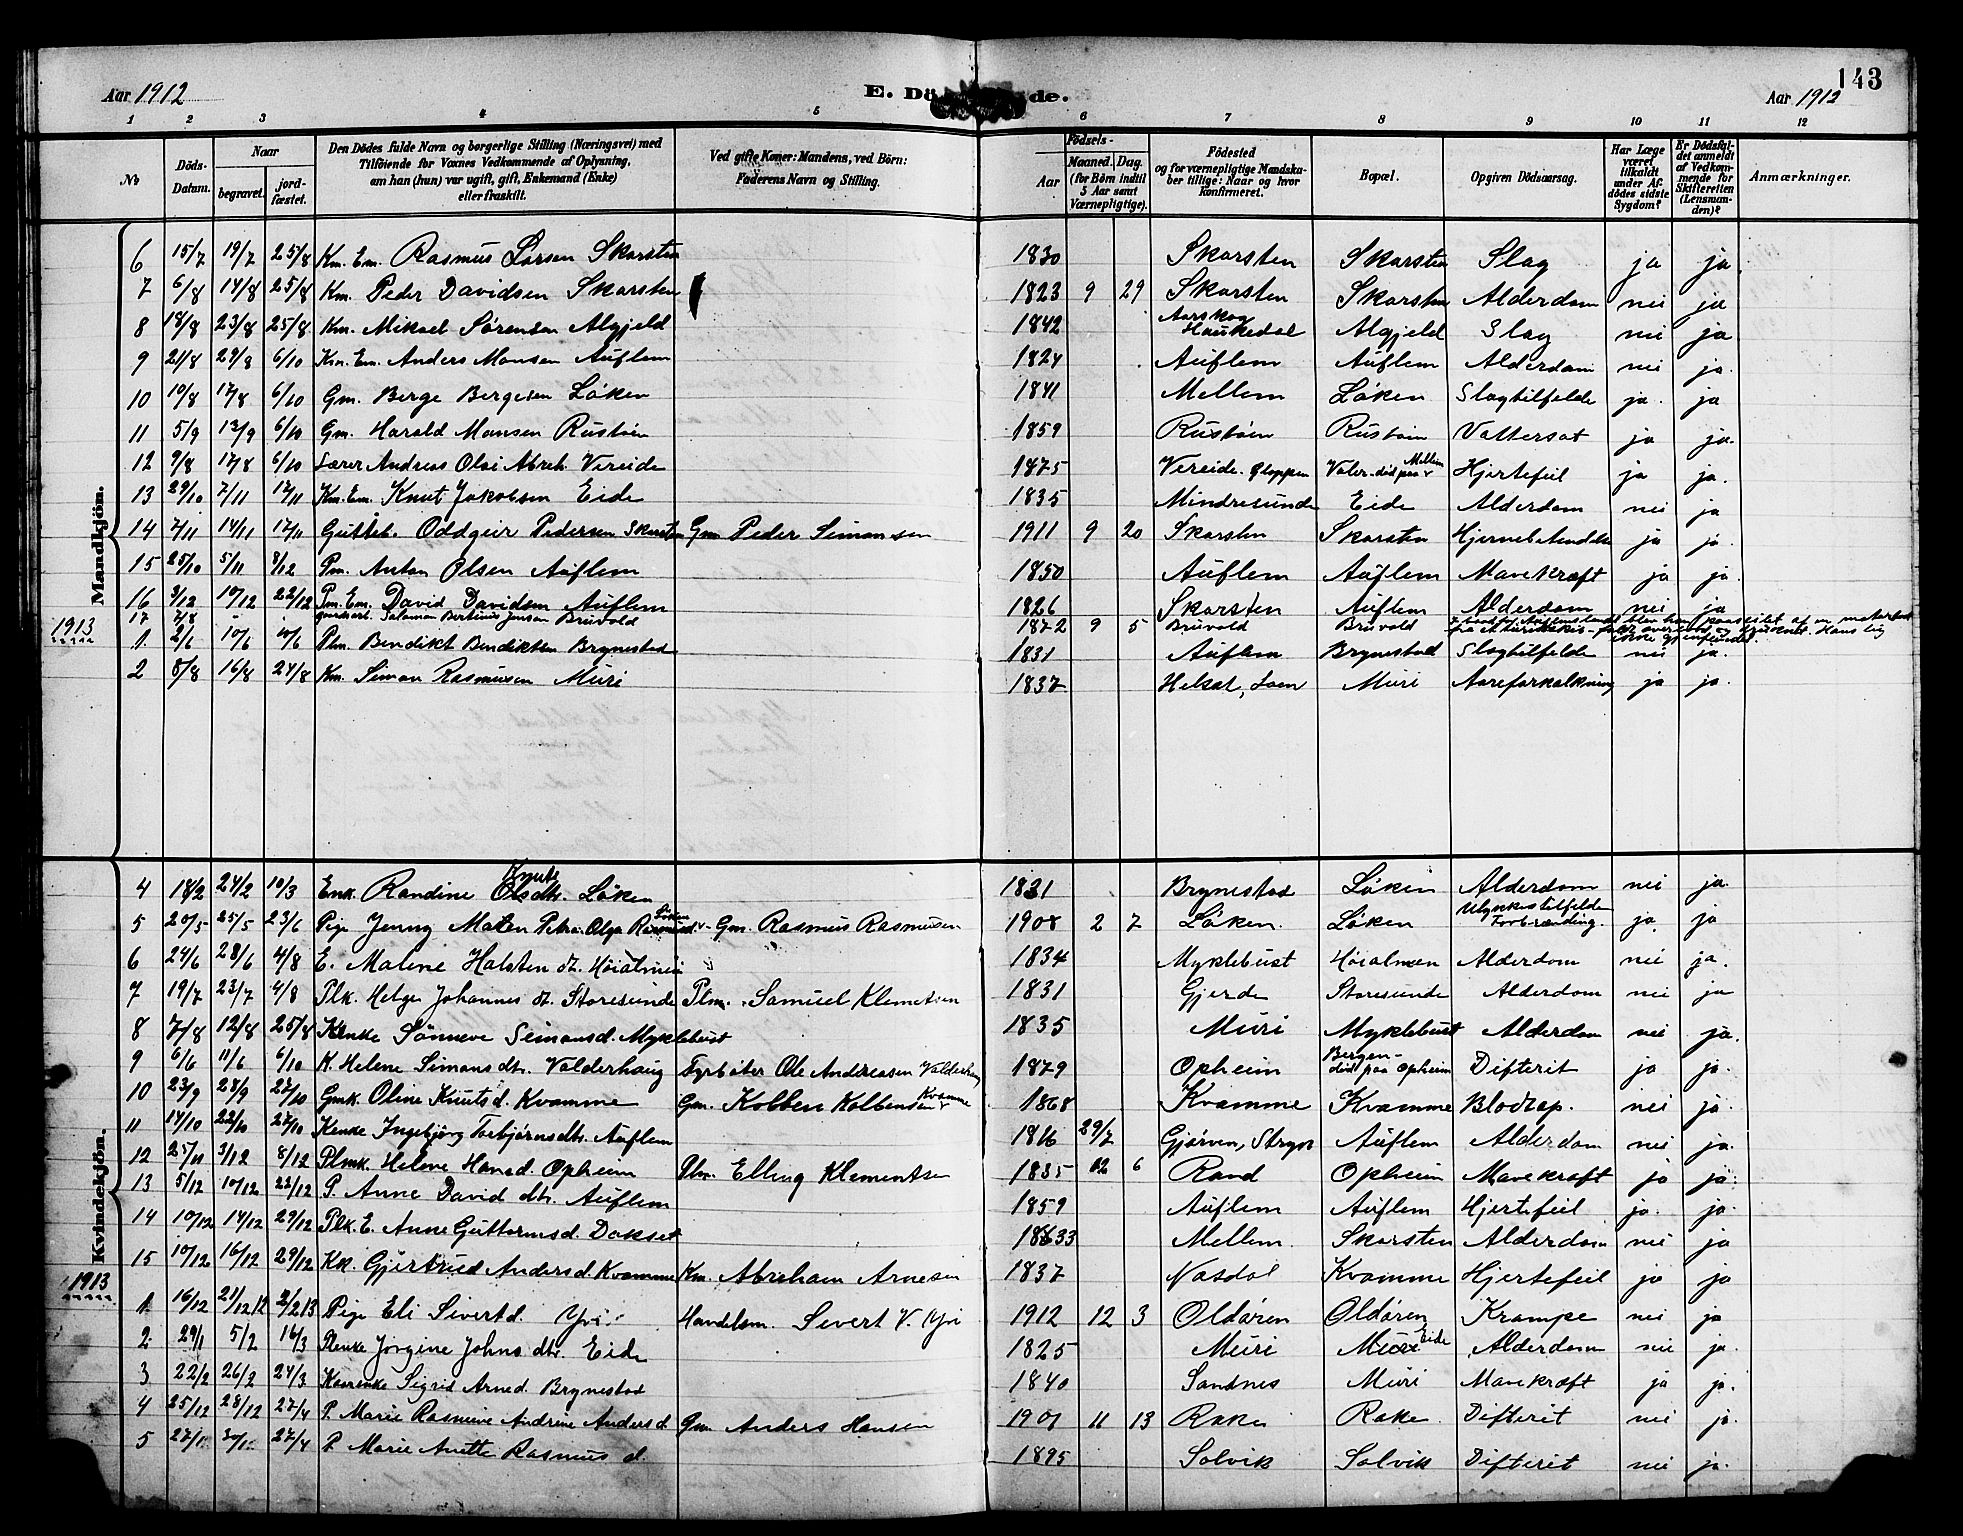 Aar 1912
E. Dö de.
Aar 1912
143
1 2 3 4 5 6 7 8 9 10 11 12
No
Döds-Datum.
Naar
begravet.
jord-fæstet.
Den Dödes fulde Navn og borgerlige Stilling (Næringsvei) med
Tilföiende for Voxnes Vedkommende af Oplysning,
om han (hun) var ugift, gift, Enkemand (Enke)
eller fraskilt.
Ved gifte Koner: Mandens, ved Börn:
Faderens Navn og Stilling.
Födsels-
Aar
Maaned. Dag.
(for Börn indtil
5 Aar samt
Værnepligtige).
Födested
og for værnepligtige Mandska-
ber tillige: Naar og hvor
konfirmeret.
Bopæl.
Opgiven Dödsaarsag.
Har Læge
været
tilkaldt
under Af-
dödes sidste
Sygdom?
Er Dödsfal-
det anmeldt
af Vedkom-
mende for
Skifteretten
(Lensman-
den)?
Anmærkninger.
Mandkjön.
6 15/7 19/7 25/8 Km. Em. Rasmus Larsen Skarsten 1830 Skarsten Skarsten Slag ja ja.
7 6/8 14/8 25/8 Km. Peder Davidsen Skarsten 1823 9 29 Skarsten Skarsten Alderdom nei ja
8 18/8 23/8 25/8 Km. Mikael Sørensen Algjeld 1842 Aarskog Haukedal Algjeld Slag nei ja
9 21/8 29/8 6/10 Km. Em. Anders Monsen Auflem 1824 Auflem Auflem Alderdom nei ja.
10 10/8 17/8 6/10 Gm. Berge Bergesen Løken 1841 Mellem Løken Slagtilfelde ja. ja
11 5/9 13/9 6/10 Gm. Harald Monsen Rustøin 1859 Rustøin Rustøin Vattersot ja ja.
12 9/8 17/8 6/10 Lærer Andreas Olai Abrah. Vereide 1875 Vereide. Gloppen Valer. død paa Mellem Hjertefeil ja ja.
13 29/10 7/11 17/11 Km. Em. Knut Jakobsen Eide 1835 Mindresunde Eide Alderdom nei ja
14 7/11 14/11 17/11 Gutteb. Oddgeir Pedersen Skarsten Gm Peder Simonsen 1911 9 20 Skarsten Skarsten Hjernebetændelse ja ja.
15 25/10 5/11 8/12 Pm. Anton Olsen Auflem 1850 Auflem Auflem Mavekræft ja ja.
16 3/12 10/12 22/12 Pm. Em. David Davidsen Auflem 1826 Skarsten Auflem Alderdom nei ja
17 7/8 " " Salomon Bertinus Jensen Bruvold 1872 9 5 Bruvold Bruvold
1913
1. 2/6 10/6 10/6 Plm. Bendikt Bendiktsen Brynestad 1831 Auflem Brynestad Slagtilfelde nei ja.
2 8/8 16/8 24/8 Km. Simon Rasmusen Muri 1837 Helset, Loen Muri Aareforkalkning ja ja.
Kvindekjön.
4 18/2 24/2 10/3 Enk. Randine Knuts Olsdtr. Løken 1831 Brynestad Løken Alderdom nei ja.
5 20/5 25/5 23/6 Pige Jenny Maten Petra Olga Rasmusd. Løken Gm. Rasmus Rasmusen 1908 2 7 Løken. Løken Ulykkestilfelde Forbrænding. ja. ja
6 24/6 28/6 4/8 E. Malene Halsten dt. Høialmen 1834 Myklebust Høialmen Alderdom nei ja.
7 19/7 23/7 4/8 Plk. Helge Johannes dt. Storesunde Plm. Samuel Klemetsen 1831 Gjerde Storesunde Alderdom nei ja
8 7/8 12/8 25/8 Kenke Sønneve Simonsd. Myklebust 1835 Muri Myklebust Alderdom nei ja.
9 6/6 11/6 6/10 K. Helene Simonsdtr. Valderhaug Fyrbøter Ole Andreasen Valderhaug 1879 Opheim Bergen- død paa Opheim Difterit ja ja.
10 23/9 28/9 27/10 Gmk. Oline Knutsd. Kvamme Gm. Kolben Kolbensen Kvamme 1868 Kvamme Kvamme Blodtap. nei ja.
11 14/10 22/10 27/10 Kenke Ingebjørg Torbjørnsdtr. Auflem 1816 29/7 Gjørven, Stryn Auflem Alderdom nei ja.
12 25/11 3/12 8/12 Plmk. Helene Hansd. Opheim Plm. Elling Klementsen 1835 12 6 Rand Opheim Mavekræft ja ja.
13 5/12 10/12 22/12 P. Anne David dtr. Auflem 1859 Auflem Auflem Hjertefeil ja. ja.
14 10/12 14/12 29/12 Plk. E. Anne Guttormsd. Dokset 1833 Mellem. Skarsten Alderdom nei ja
15 10/12 16/12 29/12 Kk. Gjertrud Andersd. Kvamme Km. Abraham Arnesen 1837 Nosdal Kvamme Hjertefeil ja ja
1913
1. 16/12 21/12 12 2/2 13 Pige Eli Sivertd. Yri Handelsm. Sivert V. Yri 1912 12 3 Oldøren Oldøren Krampe nei ja
2 29/1 5/2 16/3 Plenke Jørgine Johns dtr. Eide 1825 Muri Muri Eide Alderdom nei ja.
3 22/2 26/2 24/3 Kaarenke Sigrid Arned. Brynestad 1840 Sandnes Muri Mavekræft ja ja.
4 25/12 28/12 27/4 P. Marie Rasmine Andrine Andersd. Gm. Anders Hansen 1901 11 13 Rake Rake Difterit nei ja.
5 27/1 27/4 P. Marie Anette Rasmus d. 1895 Solvik Solvik Difterit nei ja.